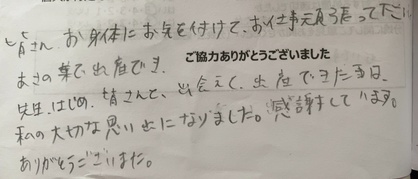 皆さん、お身体にお気を付けて、お仕事頑張って下さい
あさの葉で出産でき、
ご協力ありがとうございました
先生、はじめ、皆さんと、出会えて、出産できた事は、
私の大切な思い出になりました。感謝しています。
ありがとうございました。